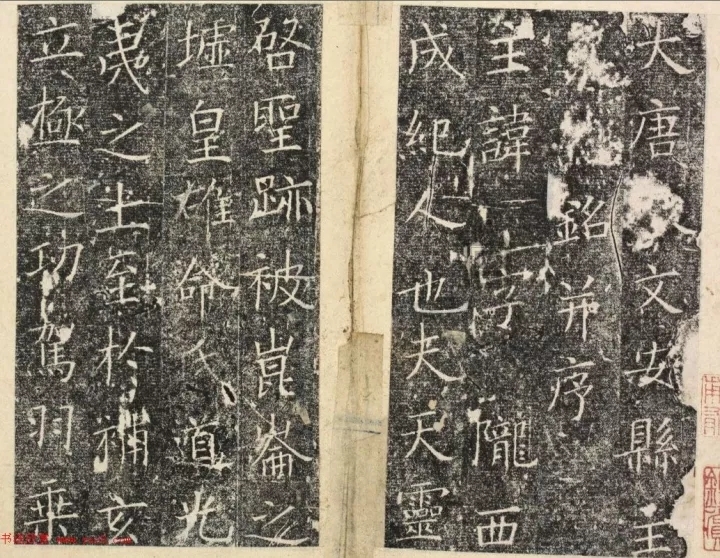 大唐文安縣主
銘并序
主諱字隴西
成紀人也夫天靈
啓聖跡被崑崙之
墟皇雄命氏道光
之土至於補玄
立極之功駕羽乘